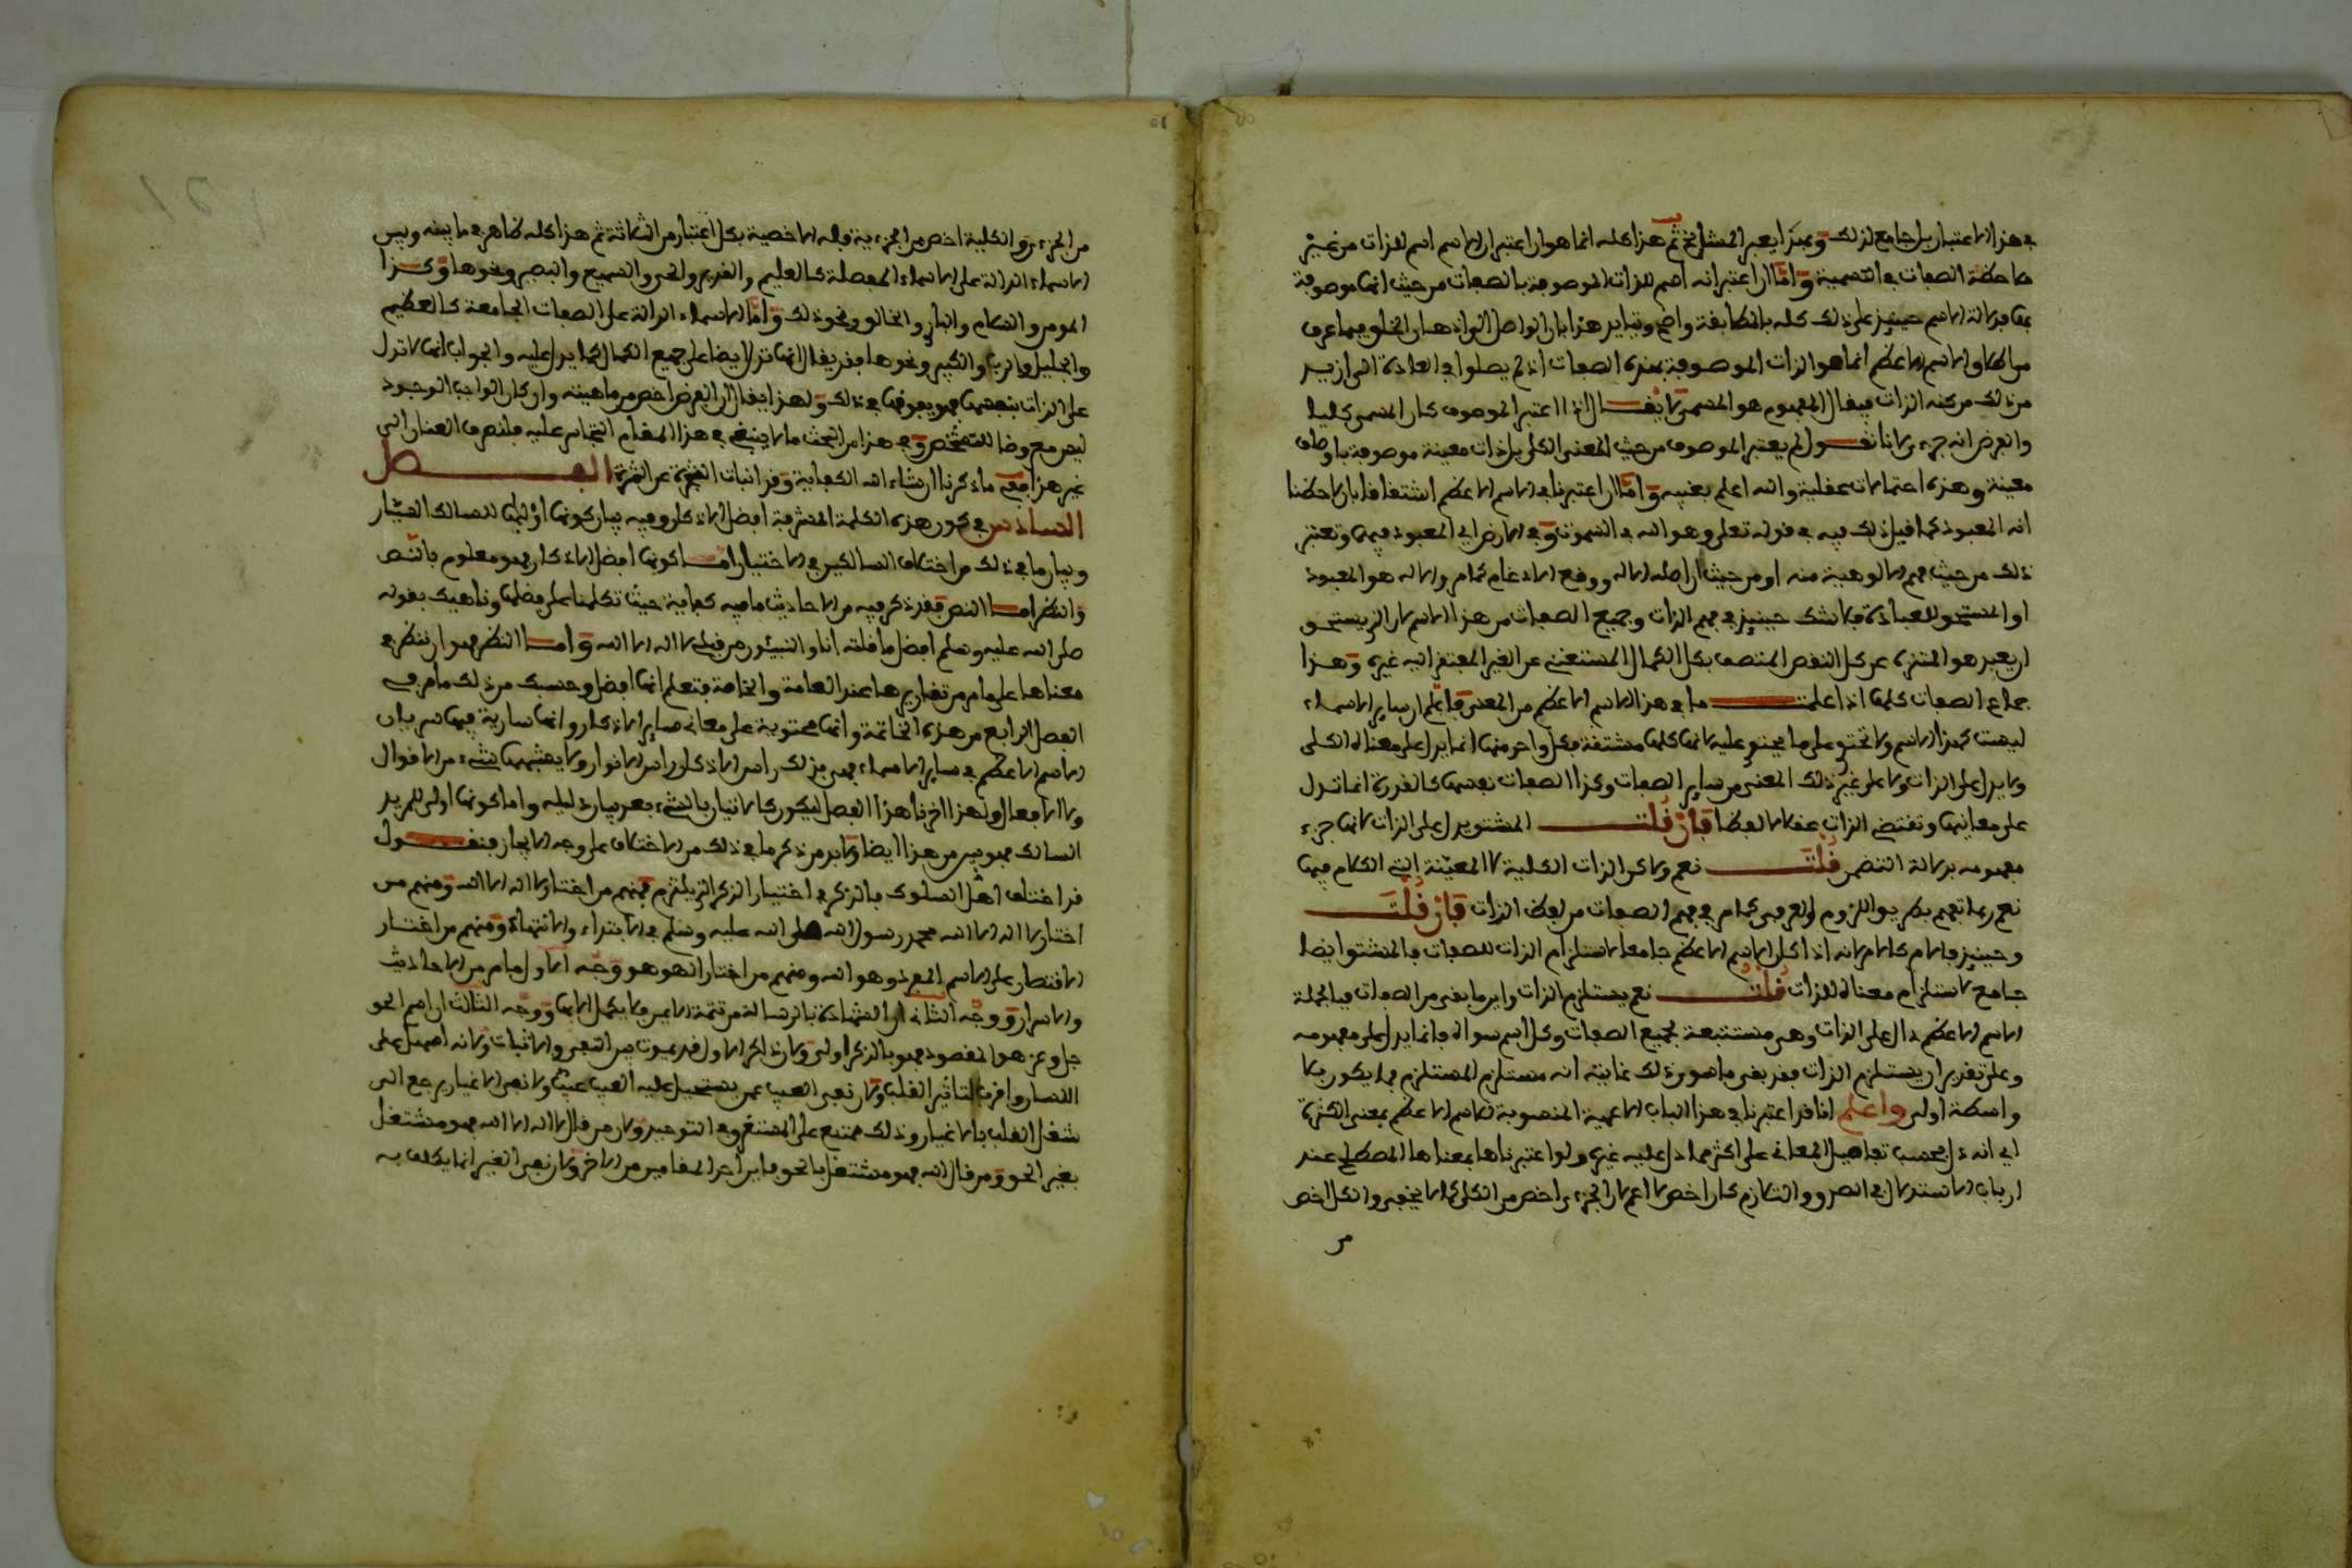 في هذا الاعتبار بل جامع لذلك وبهذا يعبر المشايخ ثم هذا كله انما هو ان اعتبر ان الاسم اسم للذات من غير
ملاحظة الصفات في التسمية واما ان اعتبر انه اسم للذات الموصوفة بالصفات من حيث انها موصوفة
بها فدلالة الاسم حينئذ على ذلك كله بالمطابقة واضح وتبايد هذا بان الواصل انما
من الاسم الاعظم انما هو الذات الموصوفة بهذه الصفات اذ لم يصلوا في العادة الى ازيد
من ذلك من كنه الذات فيقال المفهوم هو المسمى لا يقال اذا اعتبر الموصوف كان المسمى كليا
والغرض انه جزءي لانا نقول لم يعتبر الموصوف من حيث المعنى الكلي بل ذات معينة موصوفة باوصاف
معينة وهذه احتمالات عقلية والله اعلم بغيبه واما ان اعتبرنا في الاسم الاعظم اشتقاقا بان لاحظنا
انه المعبود كما قيل ذلك فيه في قوله تعلى وهو الله في السموت وفي الارض اي المعبود فيهما وتعتبر
ذلك من حيث فهم الالوهية منه او من حيث ان اصله الاله ووقع الادغام كما مر والاله هو المعبود
او المستحق للعبادة فلا شك حينئذ في فهم الذات وجميع الصفات من هذا الاسم لان الذي يستحق
ان يعبد هو المتنزه عن كل النقص المتصف بكل الكمال المستغني عن الغير المفتقر اليه غيره وهذا
جماع الصفات كلها اذا علمت ما في هذا الاسم الاعظم من المعنى فاعلم ان ساير الاسماء
ليست كهذا الاسم ولا تحتوي على ما يحتوي عليه لانها كلها مشتقة فكل واحد منها انما يدل على معناه الكلي
ولا يدل على الذات ولا على غير ذلك المعنى من ساير الصفات وكذا الصفات نفسها كالقدرة انما تدل
على معانيها وتقتضي الذات عقلا لا لفظا فان قلت المشتق يدل على الذات لانها جزء
مفهومه بدلالة التضمن قلت نعم ولاكن الذات الكلية لا المعينة التي الكلام فيها
نعم ربما تفهم بطريق اللزوم العرفي كما مر في فهم الصفات من لفظ الذات فان قلت
وحينئذ فما مر كلام لانه اذا كان الاسم الاعظم جامعا لاستلزام الذات للصفات فالمشتق ايضا
جامع لاستلزام معناه للذات قلت نعم يستلزم الذات واين ما بقي من الصفات فبالجملة
الاسم الاعظم دال على الذات وهي مستتبعة لجميع الصفات وكل اسم سواه فانما يدل على مفهومه
وعلى تقدير ان يستلزم الذات فقد بقي ما سوى ذلك غايته انه مستلزم المستلزم فما يكون بلا
واسطة اولى واعلم انا قد اعتبرنا في هذا الباب الاعمية المنسوبة للاسم الاعظم بمعنى الكثرة
اي انه دل بحسب تفاصيل المعاني على اكثر مما دل عليه غيره ولو اعتبرناها بمعناها المصطلح عند
ارباب الاستدلال في الصدق والتلازم كان اخص لا اعم لان الجزءي اخص من الكلي كما لا يخفى والكل اخص
من
من الجزء والكلية اخص من الجزءية فله الاخصية بكل اعتبار من الثلاثة ثم هذا كله ظاهر في ما بينه وبين
الاسماء الدالة على الاسماء المفصلة كالعليم والقدير والحي والسميع والبصير ونحوها وكذا
المومن والسلام والباري والخالق ونحو ذلك واما الاسماء الدالة على الصفات الجامعة كالعظيم
والجليل والرب والكبير ونحوها فقد يقال انها تدل ايضا على جميع الكمال كما يدل عليه والجواب انها لا تدل
على الذات بنفسها فهو يفوقها في ذلك ولهذا يقال ان الغرض اخص من ماهيته وان كان الواجب الوجود
ليس مع وضا للتشخص وفي هذا من البحث ما لا ينبغي في هذا المقام التحامل عليه فلنصرف العنان الى
غير هذا ففي ما ذكرنا ان شاء الله الكفاية وقد انبات الشجرة عن الثمرة الفصل
السادس في كون هذه الكلمة المشرفة افضل الاذكار وفيه بيان كونها اولى بها للسالك السيار
وبيان ما في ذلك من اختلاف السالكين في الاختيار اما كونها افضل الاذكار فهو معلوم بالنص
والنظر اما النص فقد ذكر فيه من الاحاديث ما فيه كفاية حيث تكلمنا على فضلها وناهيك بقوله
صلى الله عليه وسلم افضل ما قلته انا والنبيئون من قبلي لا اله الا الله واما النظر فهو ان تنظر في
معناها على ما مر من تقاريرها عند العامة والخاصة فتعلم انها افضل وحسبك من ذلك ما مر في
الفصل الرابع من هذه الخاتمة وانها محتوية على معاني ساير الاذكار وانها سارية فيها سريان
الاسم الاعظم في ساير الاسماء فهي بذلك راس الاذكار وراس الانوار ولا يشبهها شيء من الاقوال
ولا الافعال ولهذا اخرنا هذا الفصل ليكون كالاتيان بالشيء بعد بيان دليله واما كونها اولى للمريد
السالك فهو بين من هذا ايضا ولا بد من ذكر ما في ذلك من الاختلاف على وجه الايجاز فنقول
قد اختلف اهل السلوك بالذكر في اختيار الذكر الذي يلتزم فمنهم من اختار لا اله الا الله ومنهم من
اختار لا اله الا الله محمد رسول الله صلى الله عليه وسلم في الابتداء والانتهاء ومنهم من اختار
الاقتصار على الاسم المفرد وهو الله ومنهم من اختار الهو هو وجه الاول ما مر من الاحاديث
والاسرار ووجه الثاني ان الشهادة بالرسالة من تتمة الايمن فلا يكمل الا بها ووجه الثالث ان اسم الحق
جل وعز هو المقصود فهو بالذكر اولى ولان ذاكر الاول قد يموت بين النفي والاثبات ولانه اسهل على
اللسان واقرب لتاثير القلب ولان نفي العيب عمن يستحيل عليه العيب عيب ولان نفي الاغيار يرجع الى
شغل القلب بالاغيار وذلك ممتنع على المستغرق في التوحيد ولان من قال لا اله الا الله فهو مشتغل
بغير الحق ومن قال الله فهو مشتغل بالحق فاين احد المقامين من الاخر ولان نفي الغير انما يكلف به